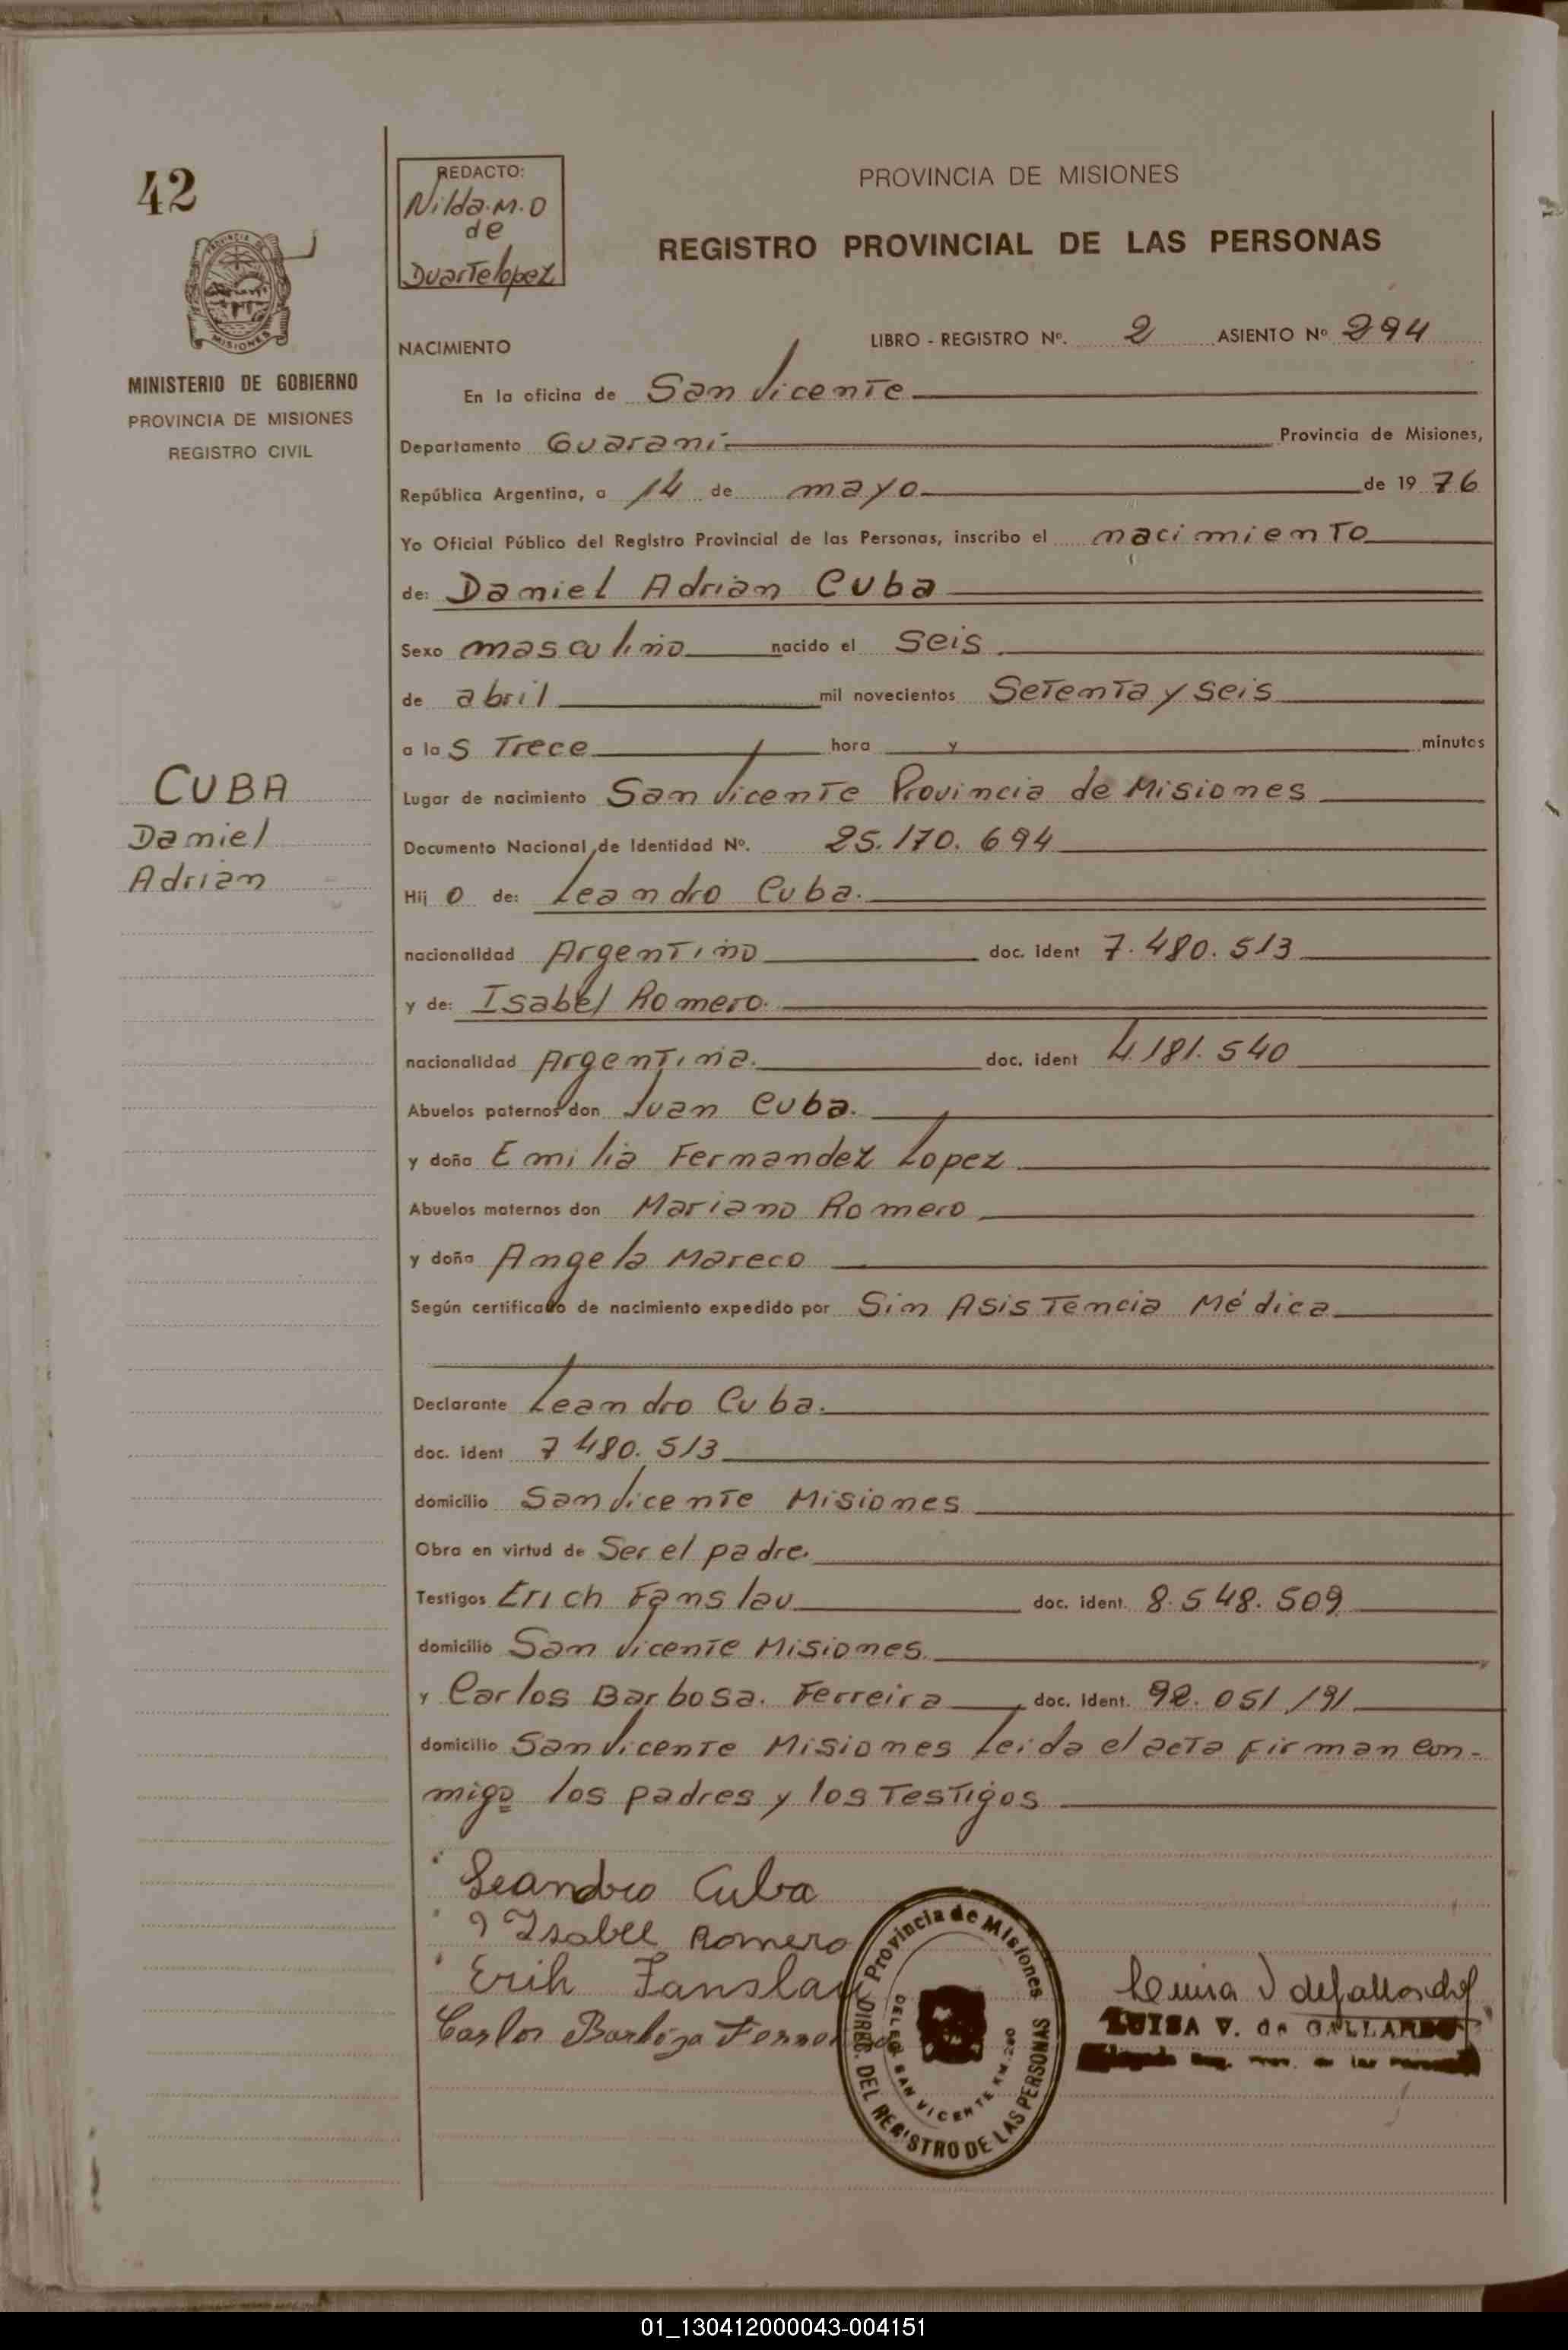 42
REDACTO:
Nilda.M.O
de
Duartelopez
PROVINCIA DE MISIONES
REGISTRO PROVINCIAL DE LAS PERSONAS
MISIONES
MINISTERIO DE GOBIERNO
PROVINCIA DE MISIONES
REGISTRO CIVIL
NACIMIENTO
LIBRO - REGISTRO Nº. 2 ASIENTO Nº 294
En la oficina de San Vicente
Departamento Guaraní Provincia de Misiones,
República Argentina, a 14 de mayo de 19 76
Yo Oficial Público del Registro Provincial de las Personas, inscribo el nacimiento
de: Daniel Adrian Cuba
Sexo masculino nacido el Seis
de abril mil novecientos Setenta y seis
a la s Trece hora y minutos
CUBA
Daniel
Adrian
Lugar de nacimiento San Vicente Provincia de Misiones
Documento Nacional de Identidad Nº. 25.170.694
Hij o de: Leandro Cuba.
nacionalidad Argentino doc. ident 7.480.513
y de: Isabel Romero.
nacionalidad Argentina. doc. ident 4.181.540
Abuelos paternos don Juan Cuba.
y doña Emilia Fernandez Lopez
Abuelos maternos don Mariano Romero
y doña Angela Mareco
Según certificado de nacimiento expedido por Sin Asistencia Médica
Declarante Leandro Cuba.
doc. ident 7 480.513
domicilio San Vicente Misiones
Obra en virtud de Ser el padre.
Testigos Erich Fanslau doc. ident. 8.548.509
domicilio San Vicente Misiones.
y Carlos Barbosa. Ferreira doc. Ident. 92.051/191
domicilio San Vicente Misiones Leida el acta firman con-
migo los padres y los Testigos
Leandro Cuba
Isabel Romero
Erih Fanslau
Carlos Barboza
Provincia de Misiones
DIREC. DEL REGISTRO DE LAS PERSONAS
DELEG. SAN VICENTE KM. 280
LUISA V. de GALLARDO
01_130412000043-004151